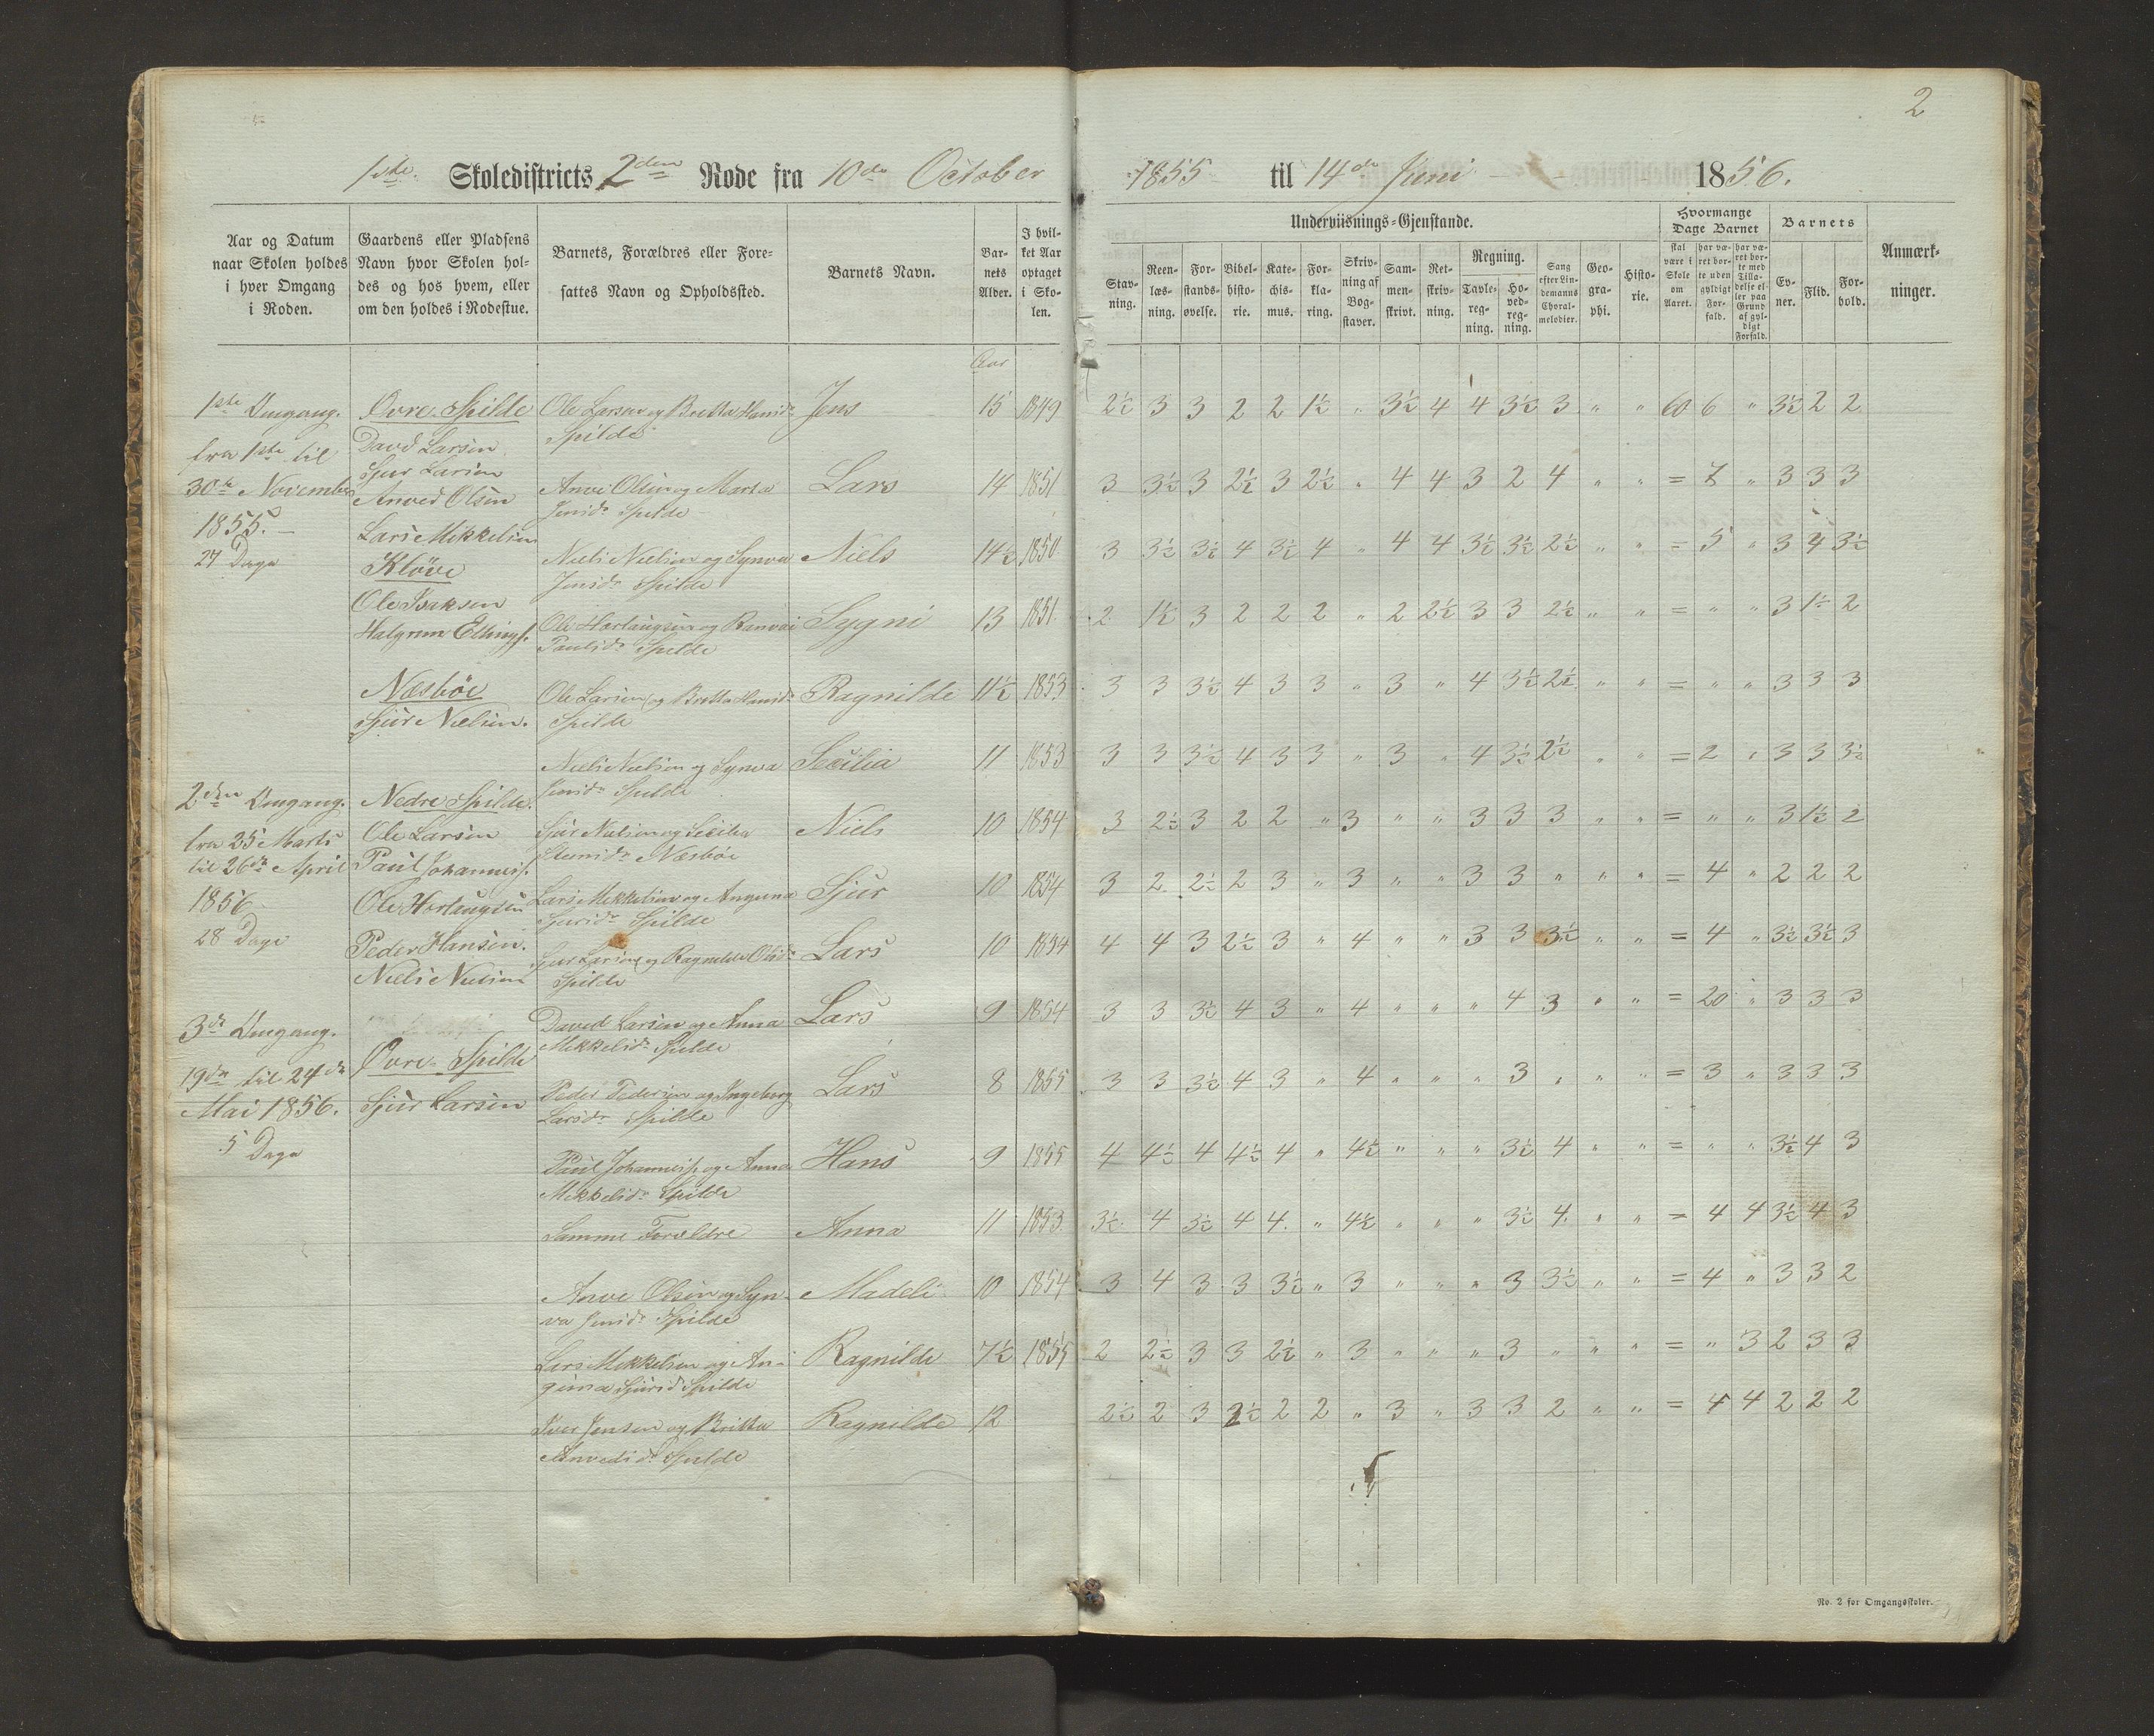 2
1ste Skoledistricts 2den Rode fra 10de October 1855 til 14de Juni 1856.
Aar og Datum naar Skolen holdes i hver Omgang i Roden.
Gaardens eller Pladsens Navn hvor Skolen holdes og hos hvem, eller om den holdes i Rodestue.
Barnets, Forældres eller Foresattes Navn og Opholdssted.
Barnets Navn.
Barnets Alder.
I hvilket Aar optaget i Skolen.
Underviisnings-Gjenstande.
Stavning.
Reenlæsning.
Forstandsøvelse.
Bibelhistorie.
Katechismus.
Forklaring.
Skrivning af Bogstaver.
Sammenskrivt.
Retskrivning.
Regning.
Tavleregning.
Hovedregning.
Sang efter Lindemanns Choralmelodier.
Geographi.
Historie.
Hvormange Dage Barnet
skal være i Skole om Aaret.
har været borte uden gyldigt Forfald.
har været borte med Tilladelse eller paa Grund af gyldigt Forfald.
Barnets
Evner.
Flid.
Forhold.
Anmærkninger.
Aar
1ste Omgang.
fra 1ste til
30te November
1855. –
27 Dage
2den Omgang.
fra 25 Marts
til 26de April
1856
28 Dage
3de Omgang.
19de til 24de
Mai 1856.
5 Dage
Øvre Spilde
David Larsen
Sjur Larsen
Anved Olsen
Lars Mikkelsen
Kløve
Ole Isaksen
Halgrem Ellings.
Næsbøe
Sjur Nielsen.
Nedre Spilde.
Ole Larsen
Paul Johanness.
Ole Hertaugsen
Peder Hansen.
Niels Nielsen
Øvre Spilde
Sjur Larsen
Ole Larsen og Britta Hansdr Spilde Jens 15 1849 2½ 3 3 2 2 1½ " 3½ 4 4 3½ 3 " " 60 6 " 3½ 2 2
Anve Olsen og Marta Jensdr Spilde Lars 14 1851 3 3½ 3 2½ 3 2½ " 4 4 3 2 4 " " = 7 " 3 3 3
Niels Nielsen og Synva Jensdr Spilde Niels 14½ 1850 3 3½ 3½ 4 3½ 4 " 4 4 3½ 3½ 2½ " " = 5 " 3 4 3½
Ole Hertaugsen og Ranvei Paulsdr Spilde Sygni 13 1851 2 1½ 3 2 2 2 " 2 2½ 3 3 2½ " " = " " 3 1½ 2
Ole Larsen og Britta Hansdr Spilde Ragnilde 11½ 1853 3 3 3½ 4 3 3 " 3 " 4 3½ 2½ " " = " " 3 3 3
Niels Nielsen og Synva Jensdr Spilde Secilia 11 1853 3 3 3½ 4 3 3 " 3 " 4 3½ 2½ " " = 2 " 3 3 3½
Sjur Nielsen og Secilia Næsbøe Niels 10 1854 3 2½ 3 2 2 " 3 " " 3 3 3 " " = " " 3 1½ 2
Lars Mikkelsen og Anguna Sjursdr Spilde Sjur 10 1854 3 2 2½ 2 3 " 3 " " 3 3 " " " = 4 " 2 2 2
Sjur Larsen og Ragnilda Olsdr Spilde Lars 10 1854 4 4 3 2½ 3 " 4 " " 3 3 3½ " " = 4 " 3½ 3½ 3
David Larsen og Anna Mikkelsdr Spilde Lars 9 1854 3 3 3½ 4 3 " 4 " " " 4 3 " " = 20 " 3 3 3
Peder Pedersen og Ingeborg Larsdr Spilde Lars 8 1855 3 3 3½ 4 3 " 4 " " " 3 " " " = 3 " 3 3 3
Paul Johanness. og Anna Mikkelsdr Spilde Hans 9 1855 4 4½ 4 4½ 4 " 4½ " " " 3½ 4 " " = " " 3½ 4 3
Samme Forældre Anna 11 1853 3½ 4 3½ 4 4 " 4½ " " " 3½ 4 " " = 4 4 3½ 4 3
Anve Olsen og Synva Jensdr Spilde Madeli 10 1854 3 4 3 3 3½ " 3 " " " 3 3½ " " = 4 " 3 3 2
Lars Mikkelsen og Anguna Sjursdr Spilde Ragnilde 7½ 1855 2 2½ 3 3 2½ " 3 " " " 3 " " " = " 3 2 3 3
Iver Jensen og Britta Anvedsdr Spilde Ragnilde 12 2½ 2 3 2½ 2 2 " 3 " 3 3 2 " " = 4 4 2 2 2
No. 2 for Omgangsskoler.